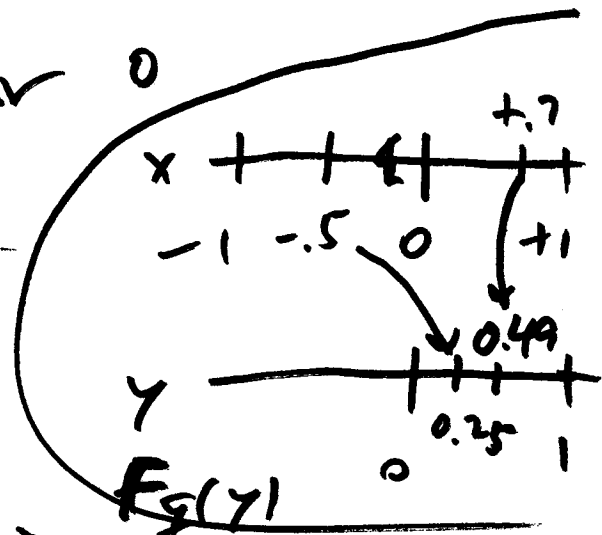 0
+.7
X
-1 -.5 0 +1
0.49
Y
0.25
0 1